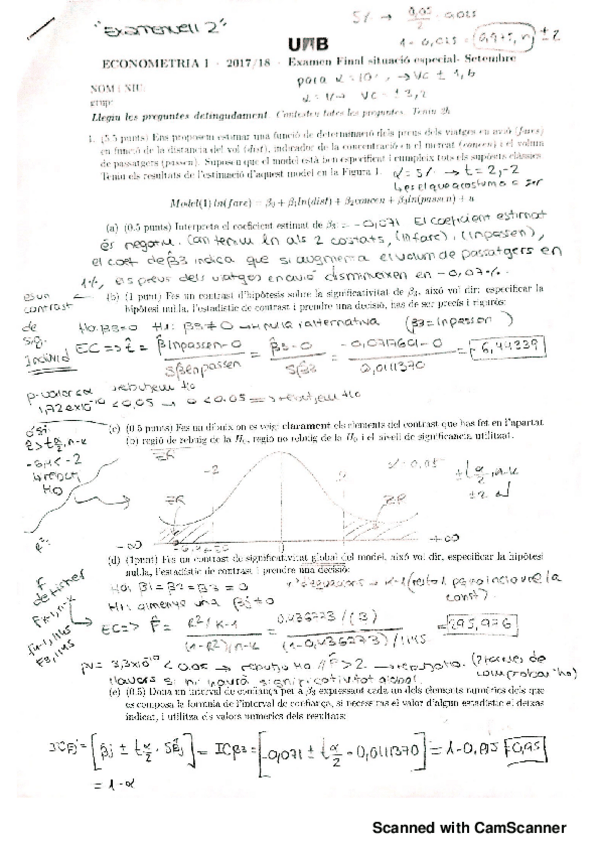 "Examen vell 2"
5% → 0,05/2 = 0.025
1 - 0,025 = 0,975, n ± 2
UAB
ECONOMETRIA I - 2017/18 - Examen Final situació especial- Setembre
para α = 10% → VC ± 1,6
NOM i NIU:
grup:
Llegiu les preguntes detingudament. Contesteu totes les preguntes. Teniu 2h
1. (5.5 punts) Ens proposem estimar una funció de determinació dels preus dels viatges en avió (fares)
en funció de la distancia del vol (dist), indicador de la concentració en el mercat (concen) i el volum
de passatgers (passen). Suposem que el model està ben especificat i compleix tots els supòsits clàssics.
Tenim els resultats de l'estimació d'aquest model en la Figura 1.
α = 5% → t = 2, -2
Model(1) ln(fare) = β₀ + β₁ln(dist) + β₂concen + β₃ln(passen) + u
(a) (0.5 punts) Interpreta el coeficient estimat de β₃ = -0,071 El coeficient estimat
és negatiu. Com tenim ln als 2 costats, (lnfare), (lnpassen),
el coef de β3 indica que si augmenta el volum de passatgers en
1%, els preus dels viatges en avió disminueixen en -0,07%.
(b) (1 punt) Fes un contrast d'hipòtesis sobre la significativitat de β₃, això vol dir: especificar la
hipòtesi nul.la, l'estadístic de contrast i prendre una decisió, has de ser precís i rigorós:
és un contrast de sig. individ
H0: β3=0 H1: β3≠0 → hipòtesi alternativa (β3=lnpassen)
EC => t = β̂lnpassen-0 / Sβ̂lnpassen = β̂3-0 / Sβ̂3 = -0,0717601-0 / 0,0111370 = -6,44339
p-valor rebutjem H0
1,72 x10⁻¹⁰ < 0,05 → 0 < 0.05 => rebutjem H0
(c) (0.5 punts) Fes un dibuix on es vegi clarament els elements del contrast que has fet en l'apartat
(b) regió de rebuig de la H₀, regió no rebuig de la H₀ i el nivell de significància utilitzat.
-2
2
α = 0,05
± t α/2, n-k
RR
-∞
0
+∞
(d) (1punt) Fes un contrast de significativitat global del model, això vol dir, especificar la hipòtesi
nul.la, l'estadístic de contrast i prendre una decisió:
F de Fisher
H0: β1=β2=β3=0
H1: almenys una βj≠0
EC=> F̂ = R²/k-1 / (1-R²)/n-k = 0.436273/(3) / (1-0,436273)/1145 = 295,936
pv = 3,3x10⁻¹⁴² < 0.05 → rebutjo H0
(e) (0.5) Dona un interval de confiança per a β₃ expressant cada un dels elements numèrics dels que
es composa la formula de l'interval de confiança, si necessites el valor d'algun estadístic el deixes
indicat, i utilitza els valors numerics dels resultats:
ICβj = [β̂j ± t α/2 · Sβ̂j] = ICβ3 = [-0,071 ± t α/2 - 0,0111370] = 1-0,95 0,95
= 1-α
Scanned with CamScanner